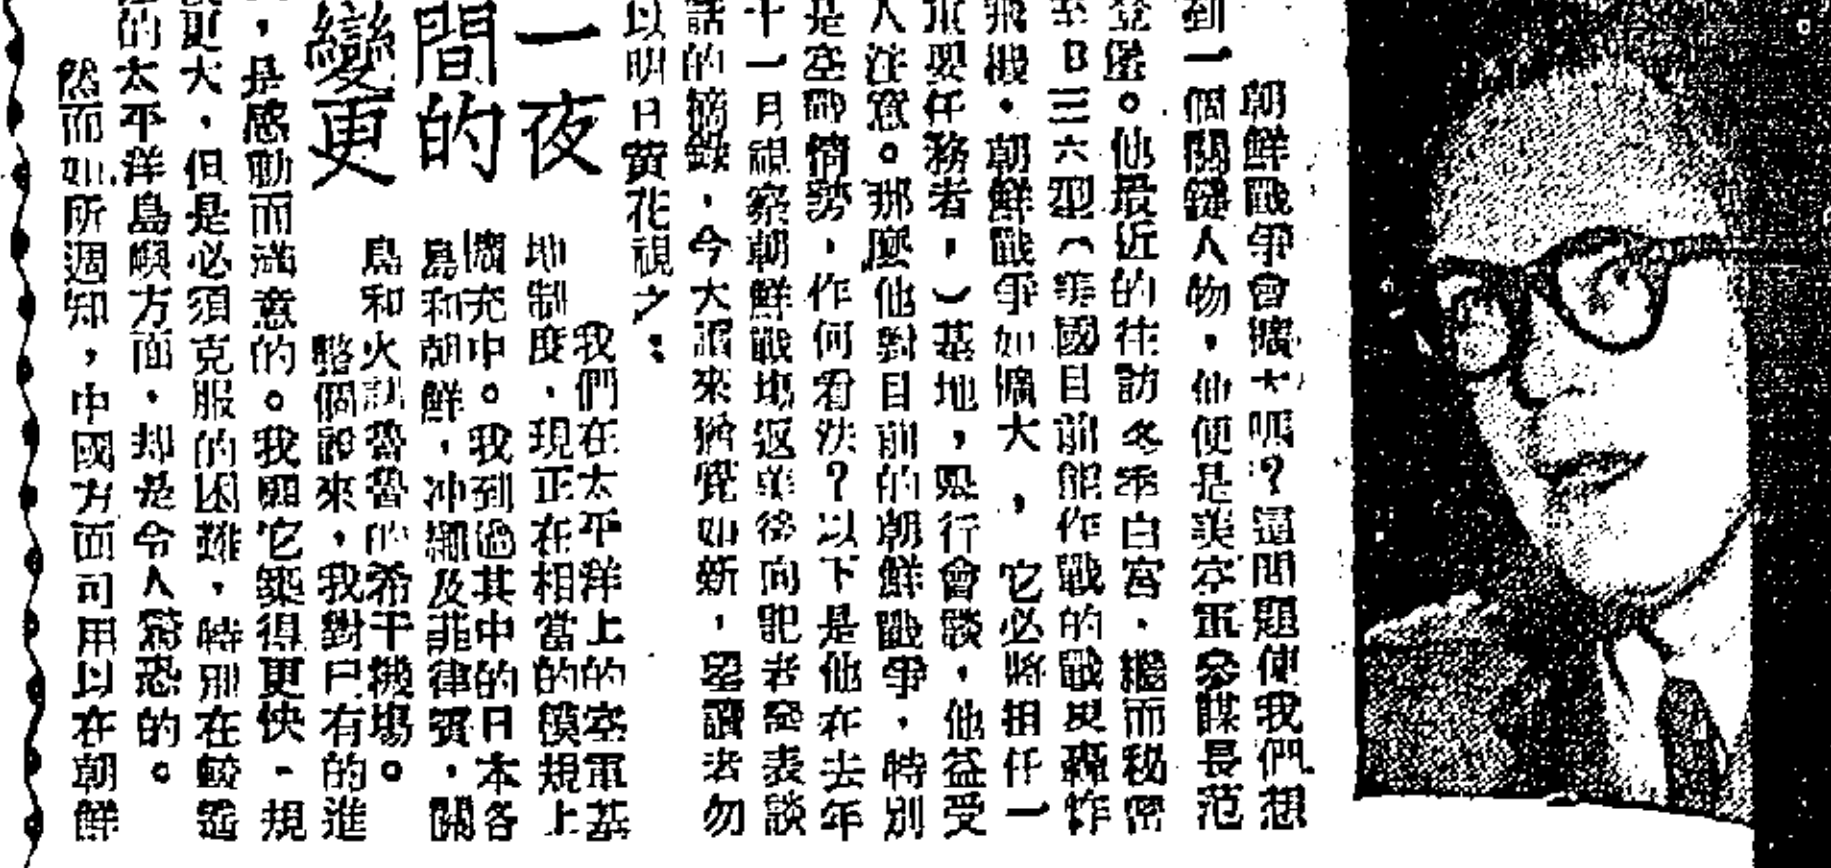 朝鮮戰爭會擴大嗎?這問題使我們想
到一個關鍵人物,他便是美空軍參謀長范
登堡。他最近的往訪冬季白宮,繼而秘密
至B三六型(美國目前能作戰的轟炸
飛機,朝鮮戰爭如擴大,它必將担任一
重要任務者,)基地,舉行會談,他益受
人注意。那麼他對目前的朝鮮戰爭,特別
是空戰情勢,作何看法?以下是他在去年
十一月視察朝鮮戰場返美後向記者發表談
話的摘錄,今大讀來猶覺如新,望讀者勿
以明日黃花視之:
一夜
間的
變更
我們在太平洋上的空軍基
地制度,現正在相當的模規上
擴充中。我到過其中的日本各
島和朝鮮,冲繩及菲律賓,關
島和火訓魯魯的希干機場。
整個說來,我對已有的進
,是感動而滿意的。我願它築得更快,規
更大,但是必須克服的困難,特別在較
的太平洋島嶼方面,却是令人驚恐的。
然而如所週知,中國方面可用以在朝鮮